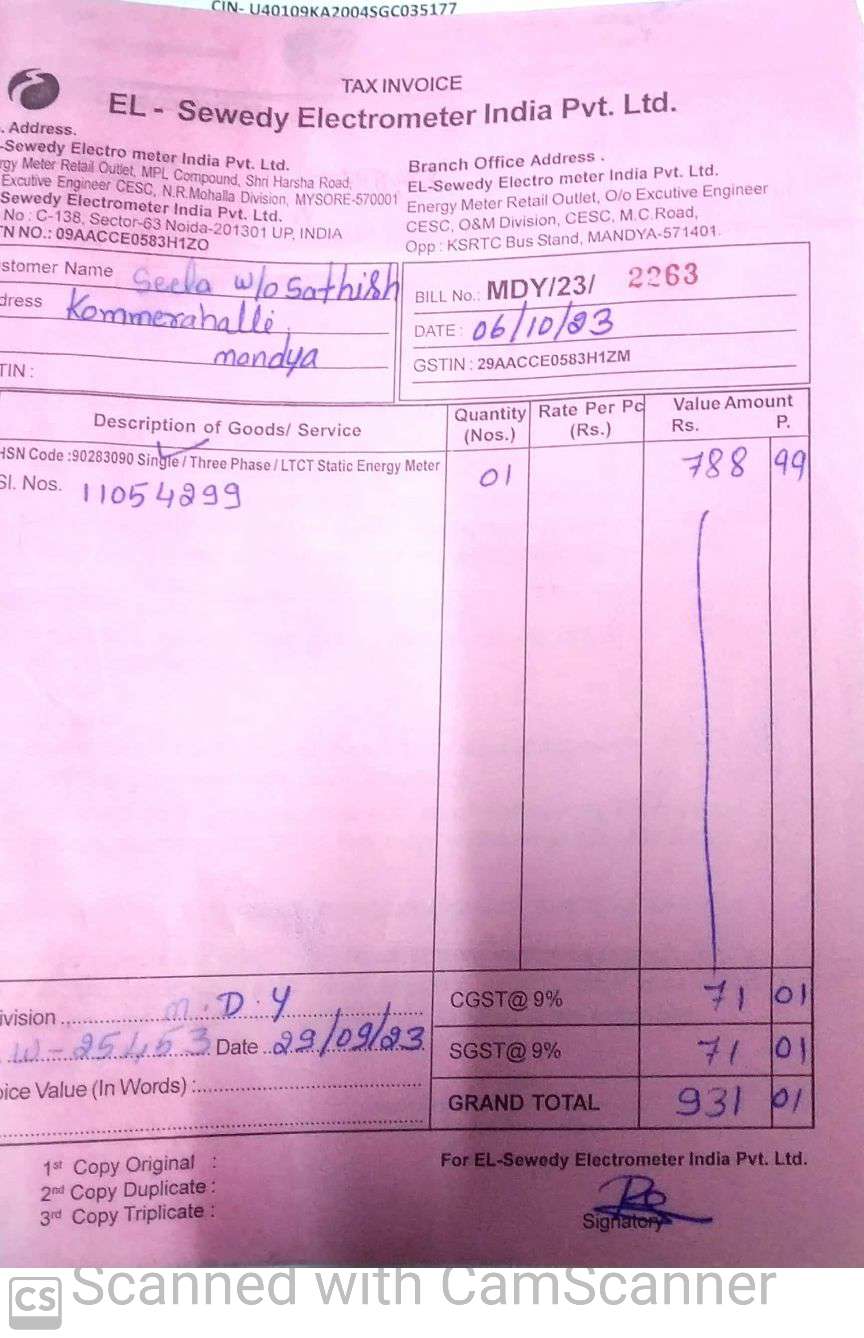 CIN- U40109KA2004SGC035177
TAX INVOICE
EL - Sewedy Electrometer India Pvt. Ltd.
. Address.
-Sewedy Electro meter India Pvt. Ltd.
rgy Meter Retail Outlet, MPL Compound, Shri Harsha Road,
Excutive Engineer CESC, N.R.Mohalla Division, MYSORE-570001
Sewedy Electrometer India Pvt. Ltd.
No : C-138, Sector-63 Noida-201301 UP, INDIA
TN NO.: 09AACCE0583H1ZO
Branch Office Address .
EL-Sewedy Electro meter India Pvt. Ltd.
Energy Meter Retail Outlet, O/o Excutive Engineer
CESC, O&M Division, CESC, M.C.Road,
Opp : KSRTC Bus Stand, MANDYA-571401.
stomer Name Seela w/o Sathish
dress Kommerahalli
mandya
TIN :
BILL No.: MDY/23/ 2263
DATE : 06/10/23
GSTIN : 29AACCE0583H1ZM
Description of Goods/ Service
Quantity (Nos.)
Rate Per Pc (Rs.)
Value Amount
Rs. P.
HSN Code :90283090 Single / Three Phase / LTCT Static Energy Meter 01 788 99
Sl. Nos. 11054299
ivision M.D.Y
CGST@ 9% 71 01
W-25453 Date 29/09/23
SGST@ 9% 71 01
oice Value (In Words) :
GRAND TOTAL 931 01
1st Copy Original :
2nd Copy Duplicate :
3rd Copy Triplicate :
For EL-Sewedy Electrometer India Pvt. Ltd.
Signatory
CS Scanned with CamScanner